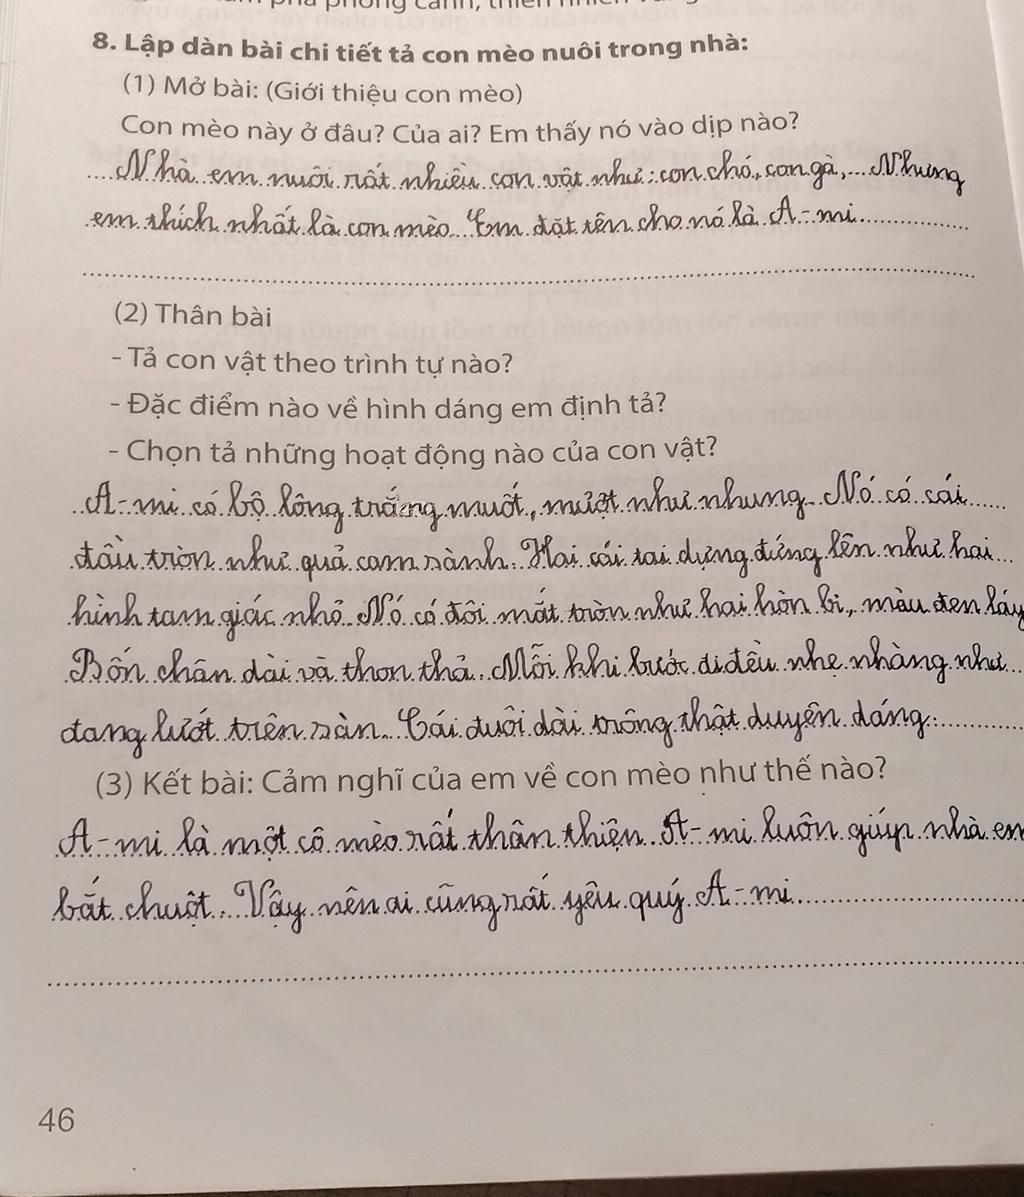 8. Lập dàn bài chi tiết tả con mèo nuôi trong nhà:
(1) Mở bài: (Giới thiệu con mèo)
Con mèo này ở đâu? Của ai? Em thấy nó vào dịp nào?
Nhà em nuôi rất nhiều con vật như: con chó, con gà,... Nhưng
em thích nhất là con mèo. Em đặt tên cho nó là A-mi
(2) Thân bài
- Tả con vật theo trình tự nào?
- Đặc điểm nào về hình dáng em định tả?
- Chọn tả những hoạt động nào của con vật?
A-mi có bộ lông trắng muốt, mượt như nhung. Nó có cái
đầu tròn như quả cam sành. Hai cái tai dựng đứng lên như hai
hình tam giác nhỏ. Nó có đôi mắt tròn như hai hòn bi, màu đen láy
Bốn chân dài và thon thả. Mỗi khi bước đi đều nhẹ nhàng như
đang lướt trên sàn. Cái đuôi dài trông thật duyên dáng.
(3) Kết bài: Cảm nghĩ của em về con mèo như thế nào?
A-mi là một cô mèo rất thân thiện. A-mi luôn giúp nhà em
bắt chuột. Vậy nên ai cũng rất yêu quý A-mi
46